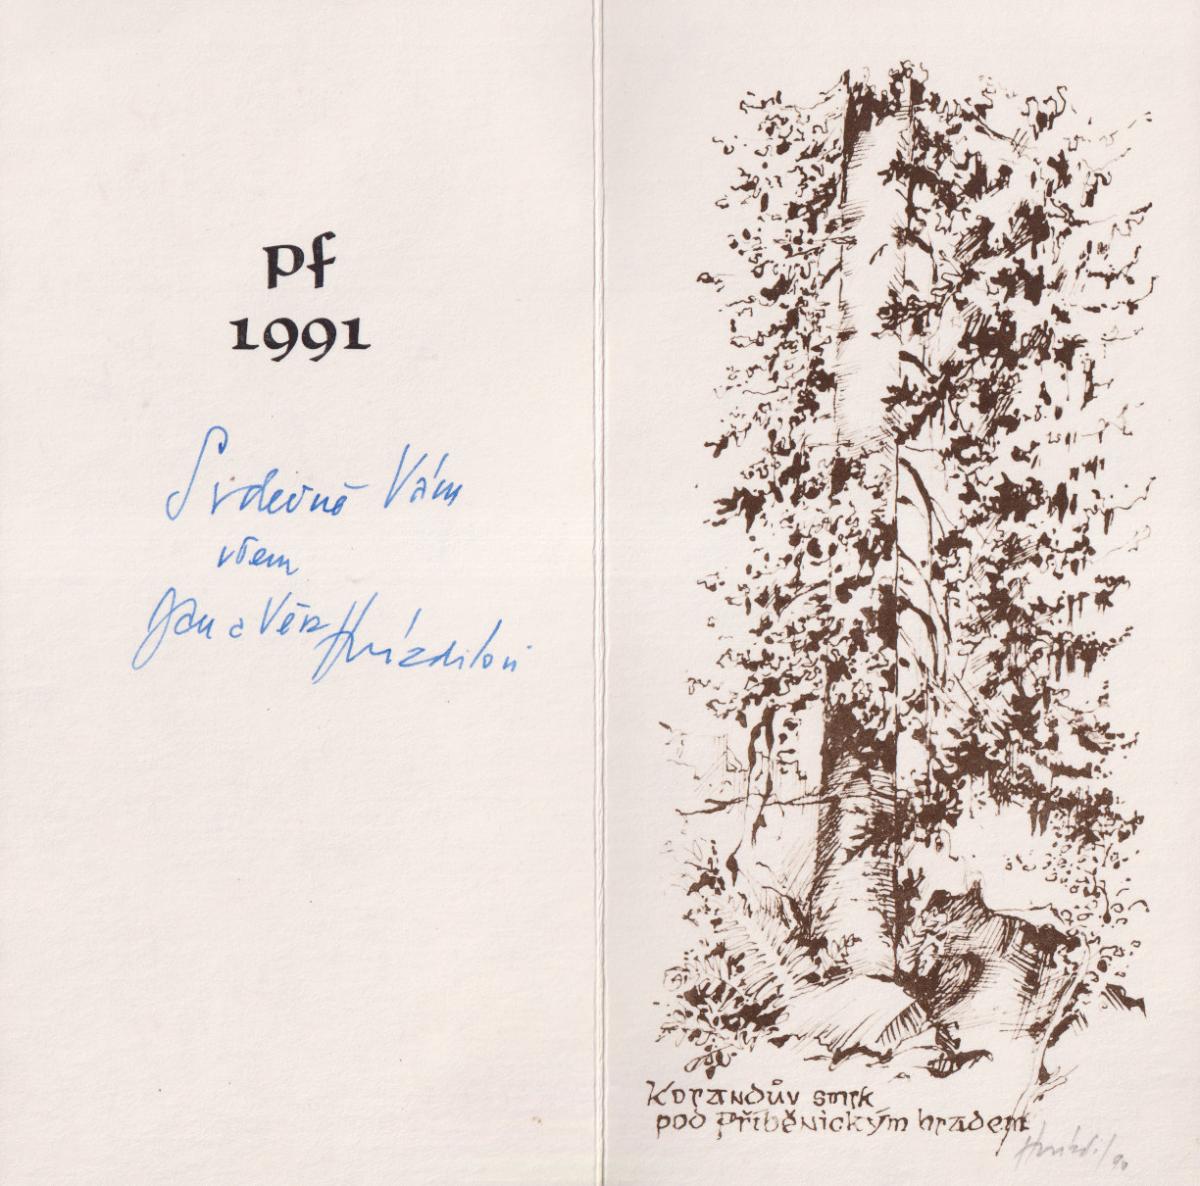 pf
1991
Srdečně Vám
všem
Jan a Věra Hvízdilovi
Korandův smrk
pod Příběnickým hradem